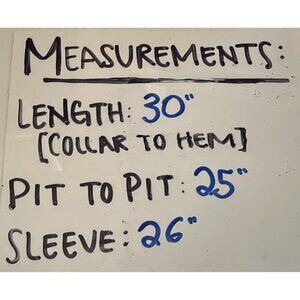 MEASUREMENTS:
LENGTH: 30"
[COLLAR TO HEM]
PIT TO PIT: 25"
SLEEVE: 26"